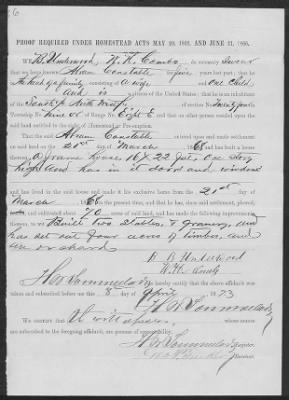 PROOF REQUIRED UNDER HOMESTEAD ACTS MAY 20, 1862, AND JUNE 21, 1866.
We, B. Underwood W. H. Combs do solemnly swear
that we have known Abram Constable for five years last past; that he
is the head of a family consisting of a wife and one child
and is a citizen of the United States; that he is an inhabitant
of the South ½ North West ¼ of section No. Twenty four in
Township No. nine of Range No. Eight E and that no other person resided upon the
said land entitled to the right of Homestead or Pre-emption.
That the said Abram Constable entered upon and made settlement
on said land on the 21st day of March, 1868 and has built a house thereon
a frame house 16 X 22 feet, one story
high and has in it door and windows
and has lived in the said house and made it his exclusive home from the 21st day of
March, 1868 to the present time, and that he has, since said settlement, plowed,
and cultivated about 70 acres of said land, and has made the following improvements
thereon, to wit: Built two Stables, 1 Granary, and
has set out four acres of timber, and
an orchard
B. B. Underwood
W. H. Combs
I, H. W. Sommerlad do hereby certify that the above affidavit was
taken and subscribed before me this 8 day of April 1873
H. W. Sommerlad
We CERTIFY that whose names
are subscribed to the foregoing affidavit, are persons of respectability.
H. W. Sommerlad, Register.
Receiver.